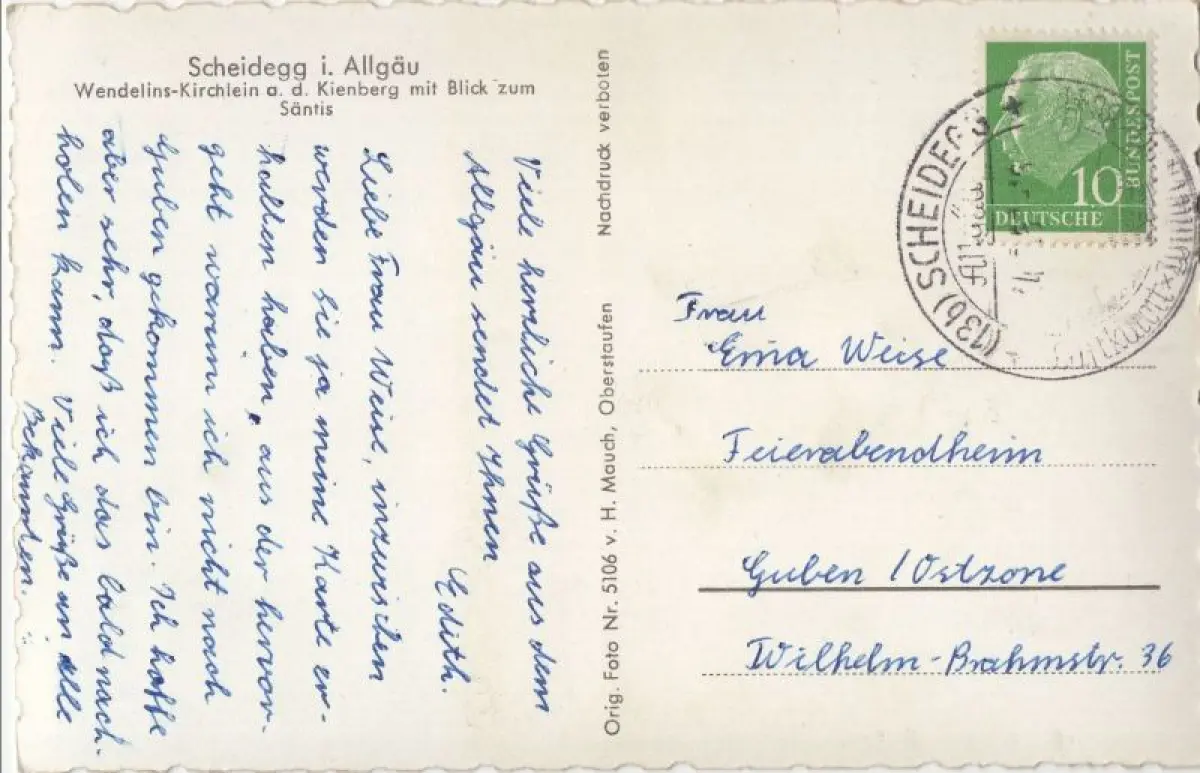 Scheidegg i. Allgäu
Wendelins-Kirchlein a. d. Kienberg mit Blick zum
Säntis
Viele herzliche Grüße aus dem
Allgäu sendet Ihnen
Edith.
Liebe Frau Weise, inzwischen
werden Sie ja meine Karte er-
halten haben, aus der hervor-
geht warum ich nicht nach
Guben gekommen bin. Ich hoffe
aber sehr, daß ich das bald nach-
holen kann. Viele Grüße an alle
Bekannten.
Orig. Foto Nr. 5106 v. H. Mauch, Oberstaufen Nachdruck verboten
10
DEUTSCHE
BUNDESPOST
(13b) SCHEIDEGG
Allgäu
Luftkurort
Frau
Ema Weise
Feierabendheim
Guben / Ostzone
Wilhelm-Brahmstr. 36